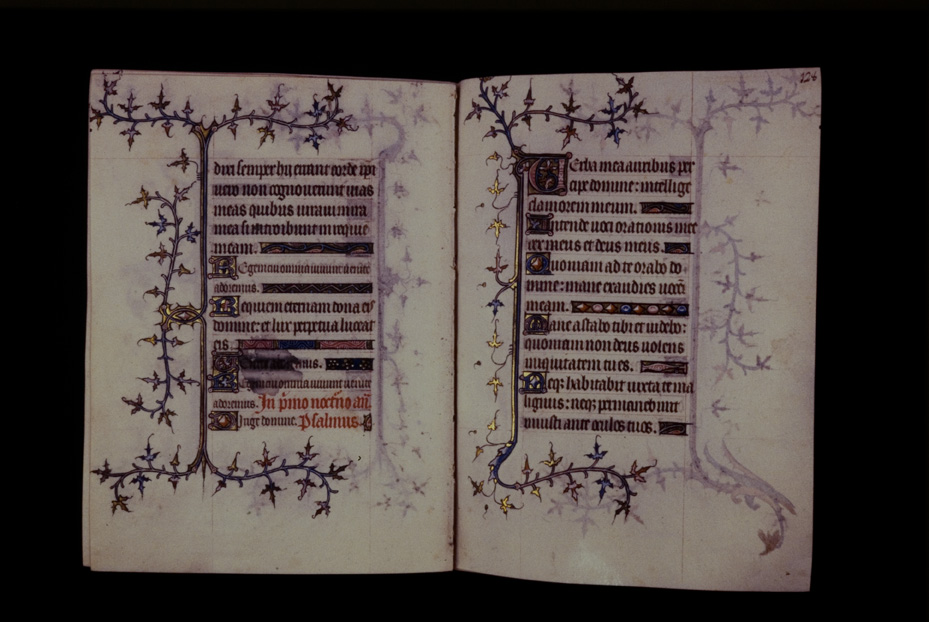 dixi semper hij errant corde ipi
vero non cognoverunt vias
meas quibus iuravi in ira
mea si introibunt in requie
meam.
Regem cui omnia vivunt venite
adoremus.
Requiem eternam dona eis
domine: et lux perpetua luceat
eis.
Regem cui omnia vivunt venite
adoremus. In pmo noctno an.
Dirige domine. Psalmus.
126
Verba mea auribus per
cipe domine: intellige
clamorem meum.
Intende voci orationis mee
rex meus et deus meus.
Quoniam ad te orabo do
mine: mane exaudies vocem
meam.
Mane astabo tibi et videbo:
quoniam non deus volens
iniquitatem tu es.
Neqz habitabit iuxta te ma
lignus: neqz permanebunt
iniusti ante oculos tuos.